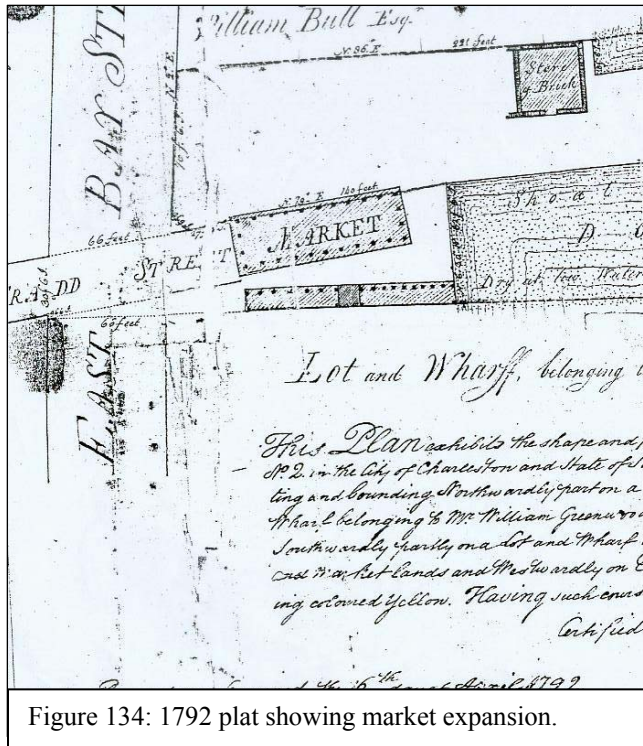 William Bull Esqr
N. 86. E 221 feet
Store
of Brick
BAY STR
N. 70° E 140 feet
MARKET
Shoal
D
Dry at low Water
66 feet
STREET
RADD
60 feet
EAST
Lot and Wharff, belonging
This Plan exhibits the shape and
No 2. in the City of Charleston and State of S
ting and bounding Northwardly part on a
Wharf belonging to Mr William Greenwoo
Southwardly partly on a Lot and Wharf
and Market lands and Westwardly on
ing coloured Yellow. Having such cours
Certified
day of April 1792
Figure 134: 1792 plat showing market expansion.